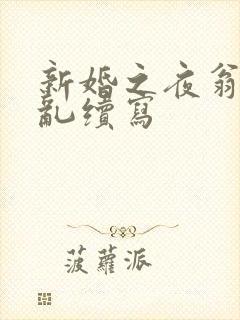 新婚之夜翁
亂續寫
菠蘿派